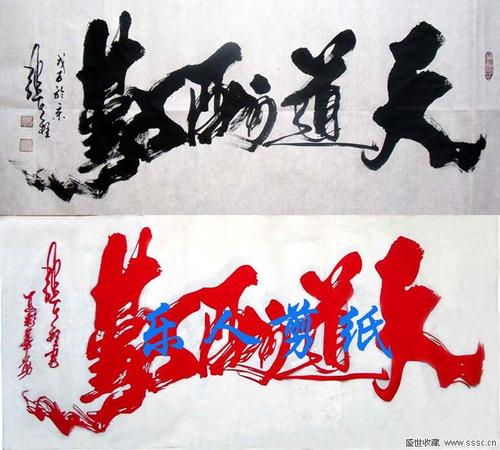 天道酬勤
戊子於京
天道酬勤
乐人剪纸
盛世收藏 www.sssc.cn